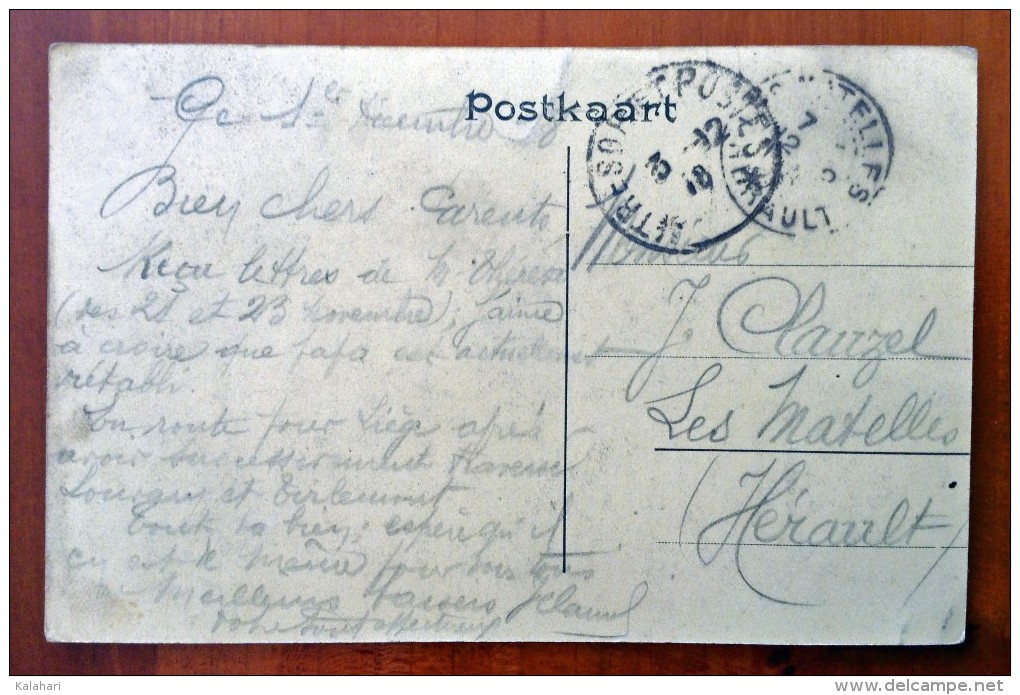 Postkaart
Ce 1er Décembre 18
Bien chers Parents
Reçu lettres de Thérèse
(des 21 et 23 novembre); J'aime
à croire que papa est actuellement
rétabli.
En route pour Liège après
avoir successivement traversé
et Tirlemont
Tout va bien; espère qu'il
en est de même pour vous tous
Meilleurs baisers
votre tout affectueux
TRESOR ET POSTES
5 -12 18
LES MATELLES
7 12
HERAULT
Monsieur
J. Clauzel
Les Matelles
(Hérault)
Kalahari
delcampe.net